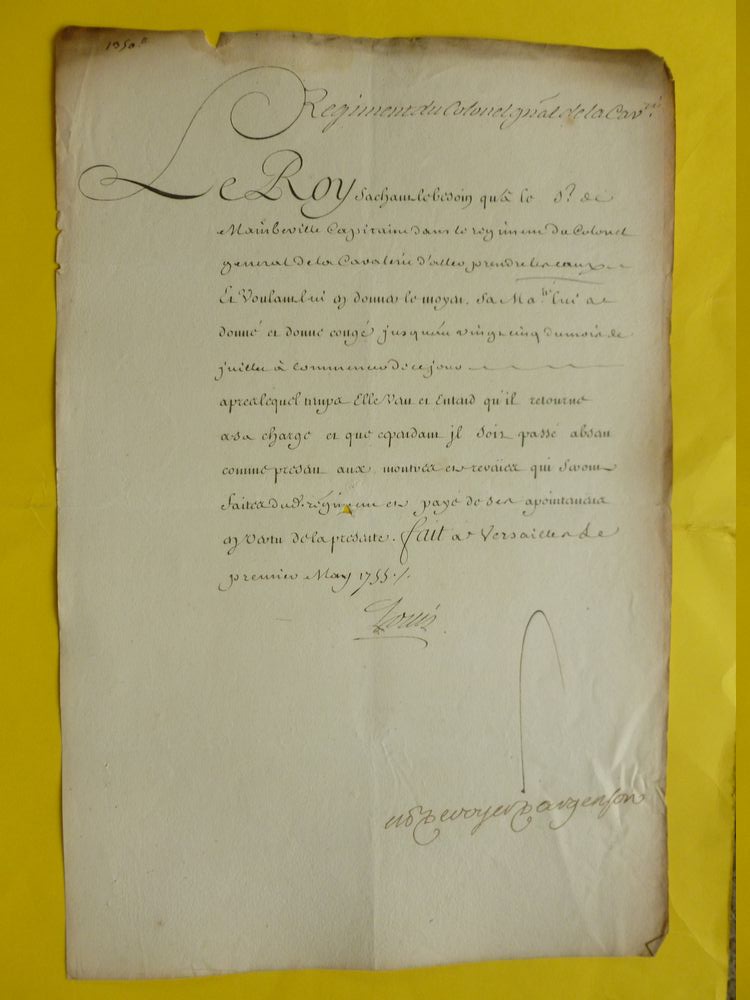 1350 #
Regiment du Colonel gñal de la Cav.rie
Le Roy Sachant le besoin qu'a le S.r de
Mainbeville Capitaine dans le regiment du Colonel
general de la Cavalerie d'aller prendre les eaux
Et Voulant lui en donner le moyen. Sa Ma.té lui a
donné et donne congé jusqu'au vingt cinq du mois de
juillet à commencer de ce jour
apres lequel temps Elle Veut et Entend qu'il retourne
a sa charge et que cependant jl soit passé absent
comme present aux montres et reveües qui Seront
faites dud. regiment et payé de ses apointemens
en vertu de la presente. fait a Versailles Le
premier May 1755./.
Louis
de voyer d'argenson